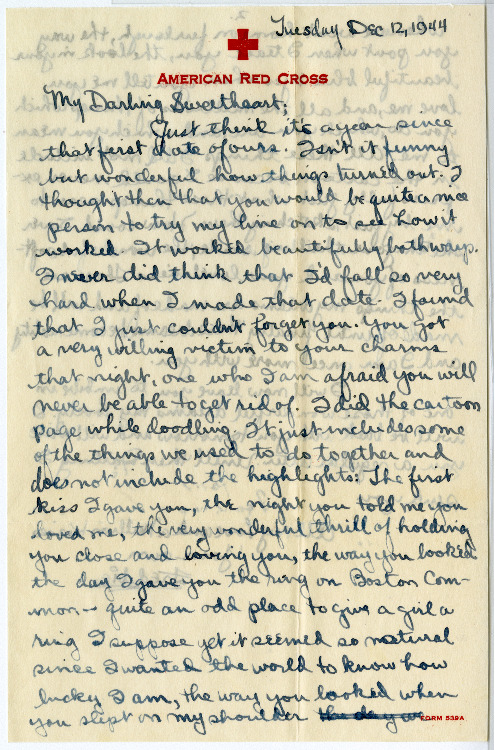 Tuesday Dec 12, 1944
AMERICAN RED CROSS
My Darling Sweetheart;
Just think it's a year since
that first date of ours. Isn't it funny
but wonderful how things turned out. I
thought then that you would be quite a nice
person to try my line on to see how it
worked. It worked beautifully both ways.
I never did think that I'd fall so very
hard when I made that date. I found
that I just couldn't forget you. You got
a very willing victim to your charms
that night, one who I am afraid you will
never be able to get rid of. I did the cartoon
page while doodling. It just includes some
of the things we used to do together and
does not include the highlights: The first
kiss I gave you, the night you told me you
loved me, the very wonderful thrill of holding
you close and loving you, the way you looked
the day I gave you the ring on Boston Com-
mon -- quite an odd place to give a girl a
ring I suppose yet it seemed so natural
since I wanted the world to know how
lucky I am, the way you looked when
you slept on my shoulder the day we
FORM 539A